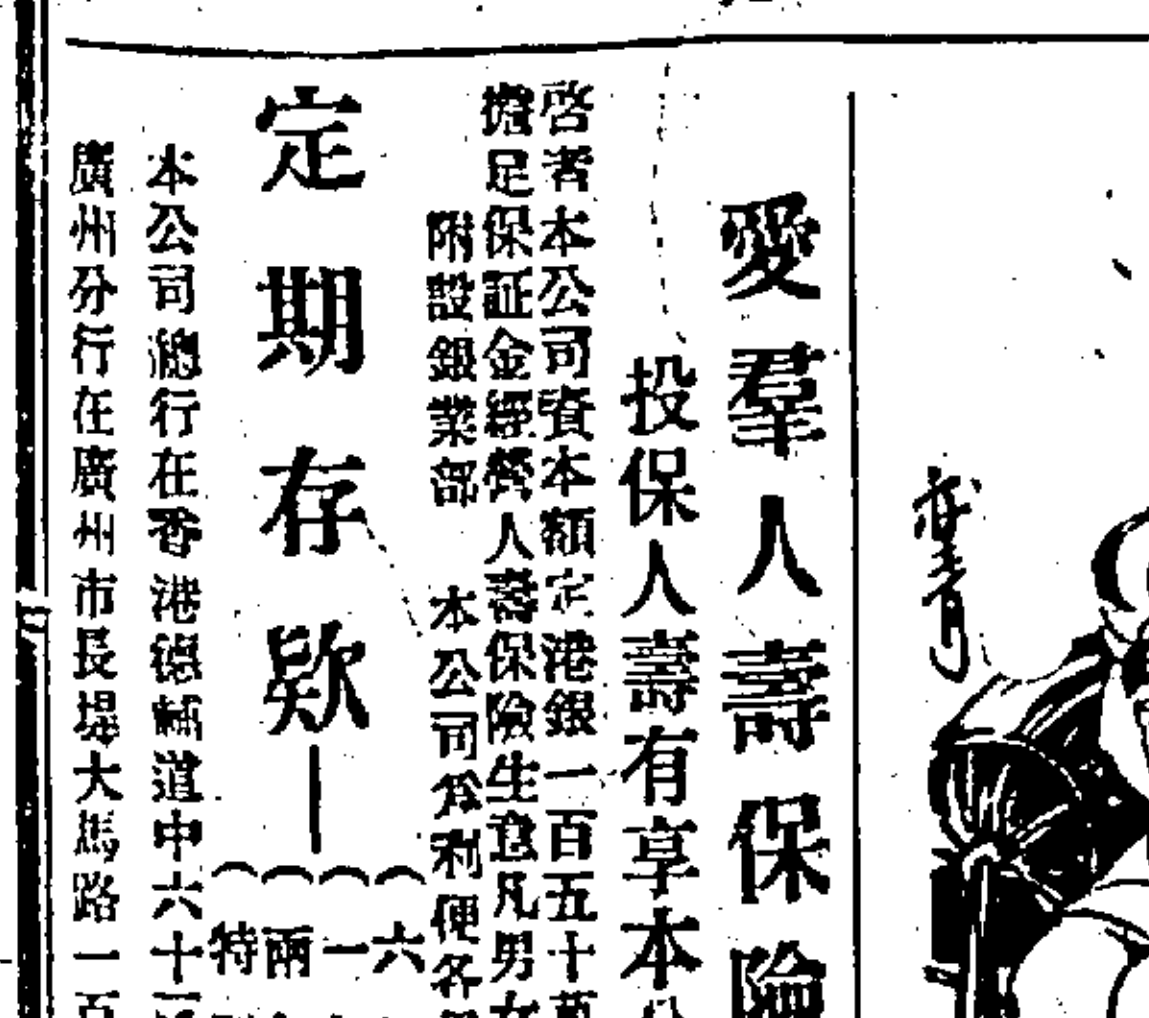 愛羣人壽保險
投保人壽有享本公
啓者本公司資本額定港銀一百五十萬
擔足保証金經營人壽保險生意凡男女
附設銀業部　本公司爲利便各
定期存欵—
（六
（一
（兩
（特
本公司總行在香港德輔道中六十
廣州分行在廣州市長堤大馬路一百